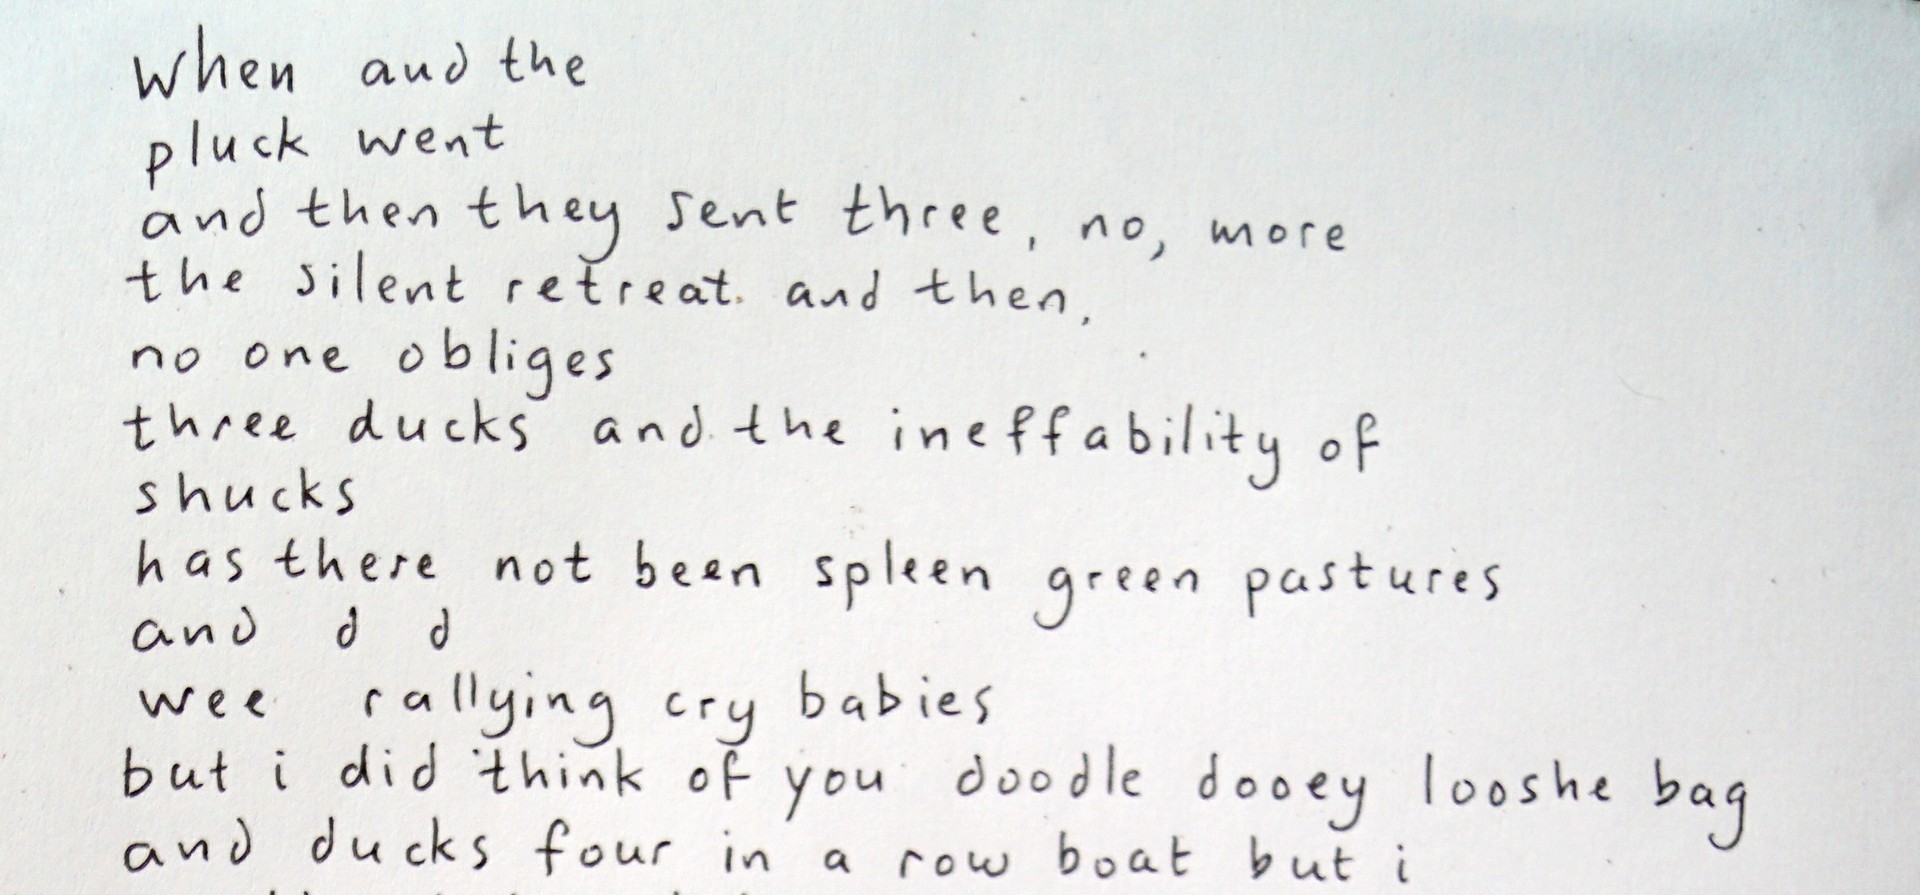 When and the
pluck went
and then they sent three, no, more
the silent retreat. and then,
no one obliges
three ducks and the ineffability of
shucks
has there not been spleen green pastures
and d d
wee rallying cry babies
but i did think of you doodle dooey looshe bag
and ducks four in a row boat but i